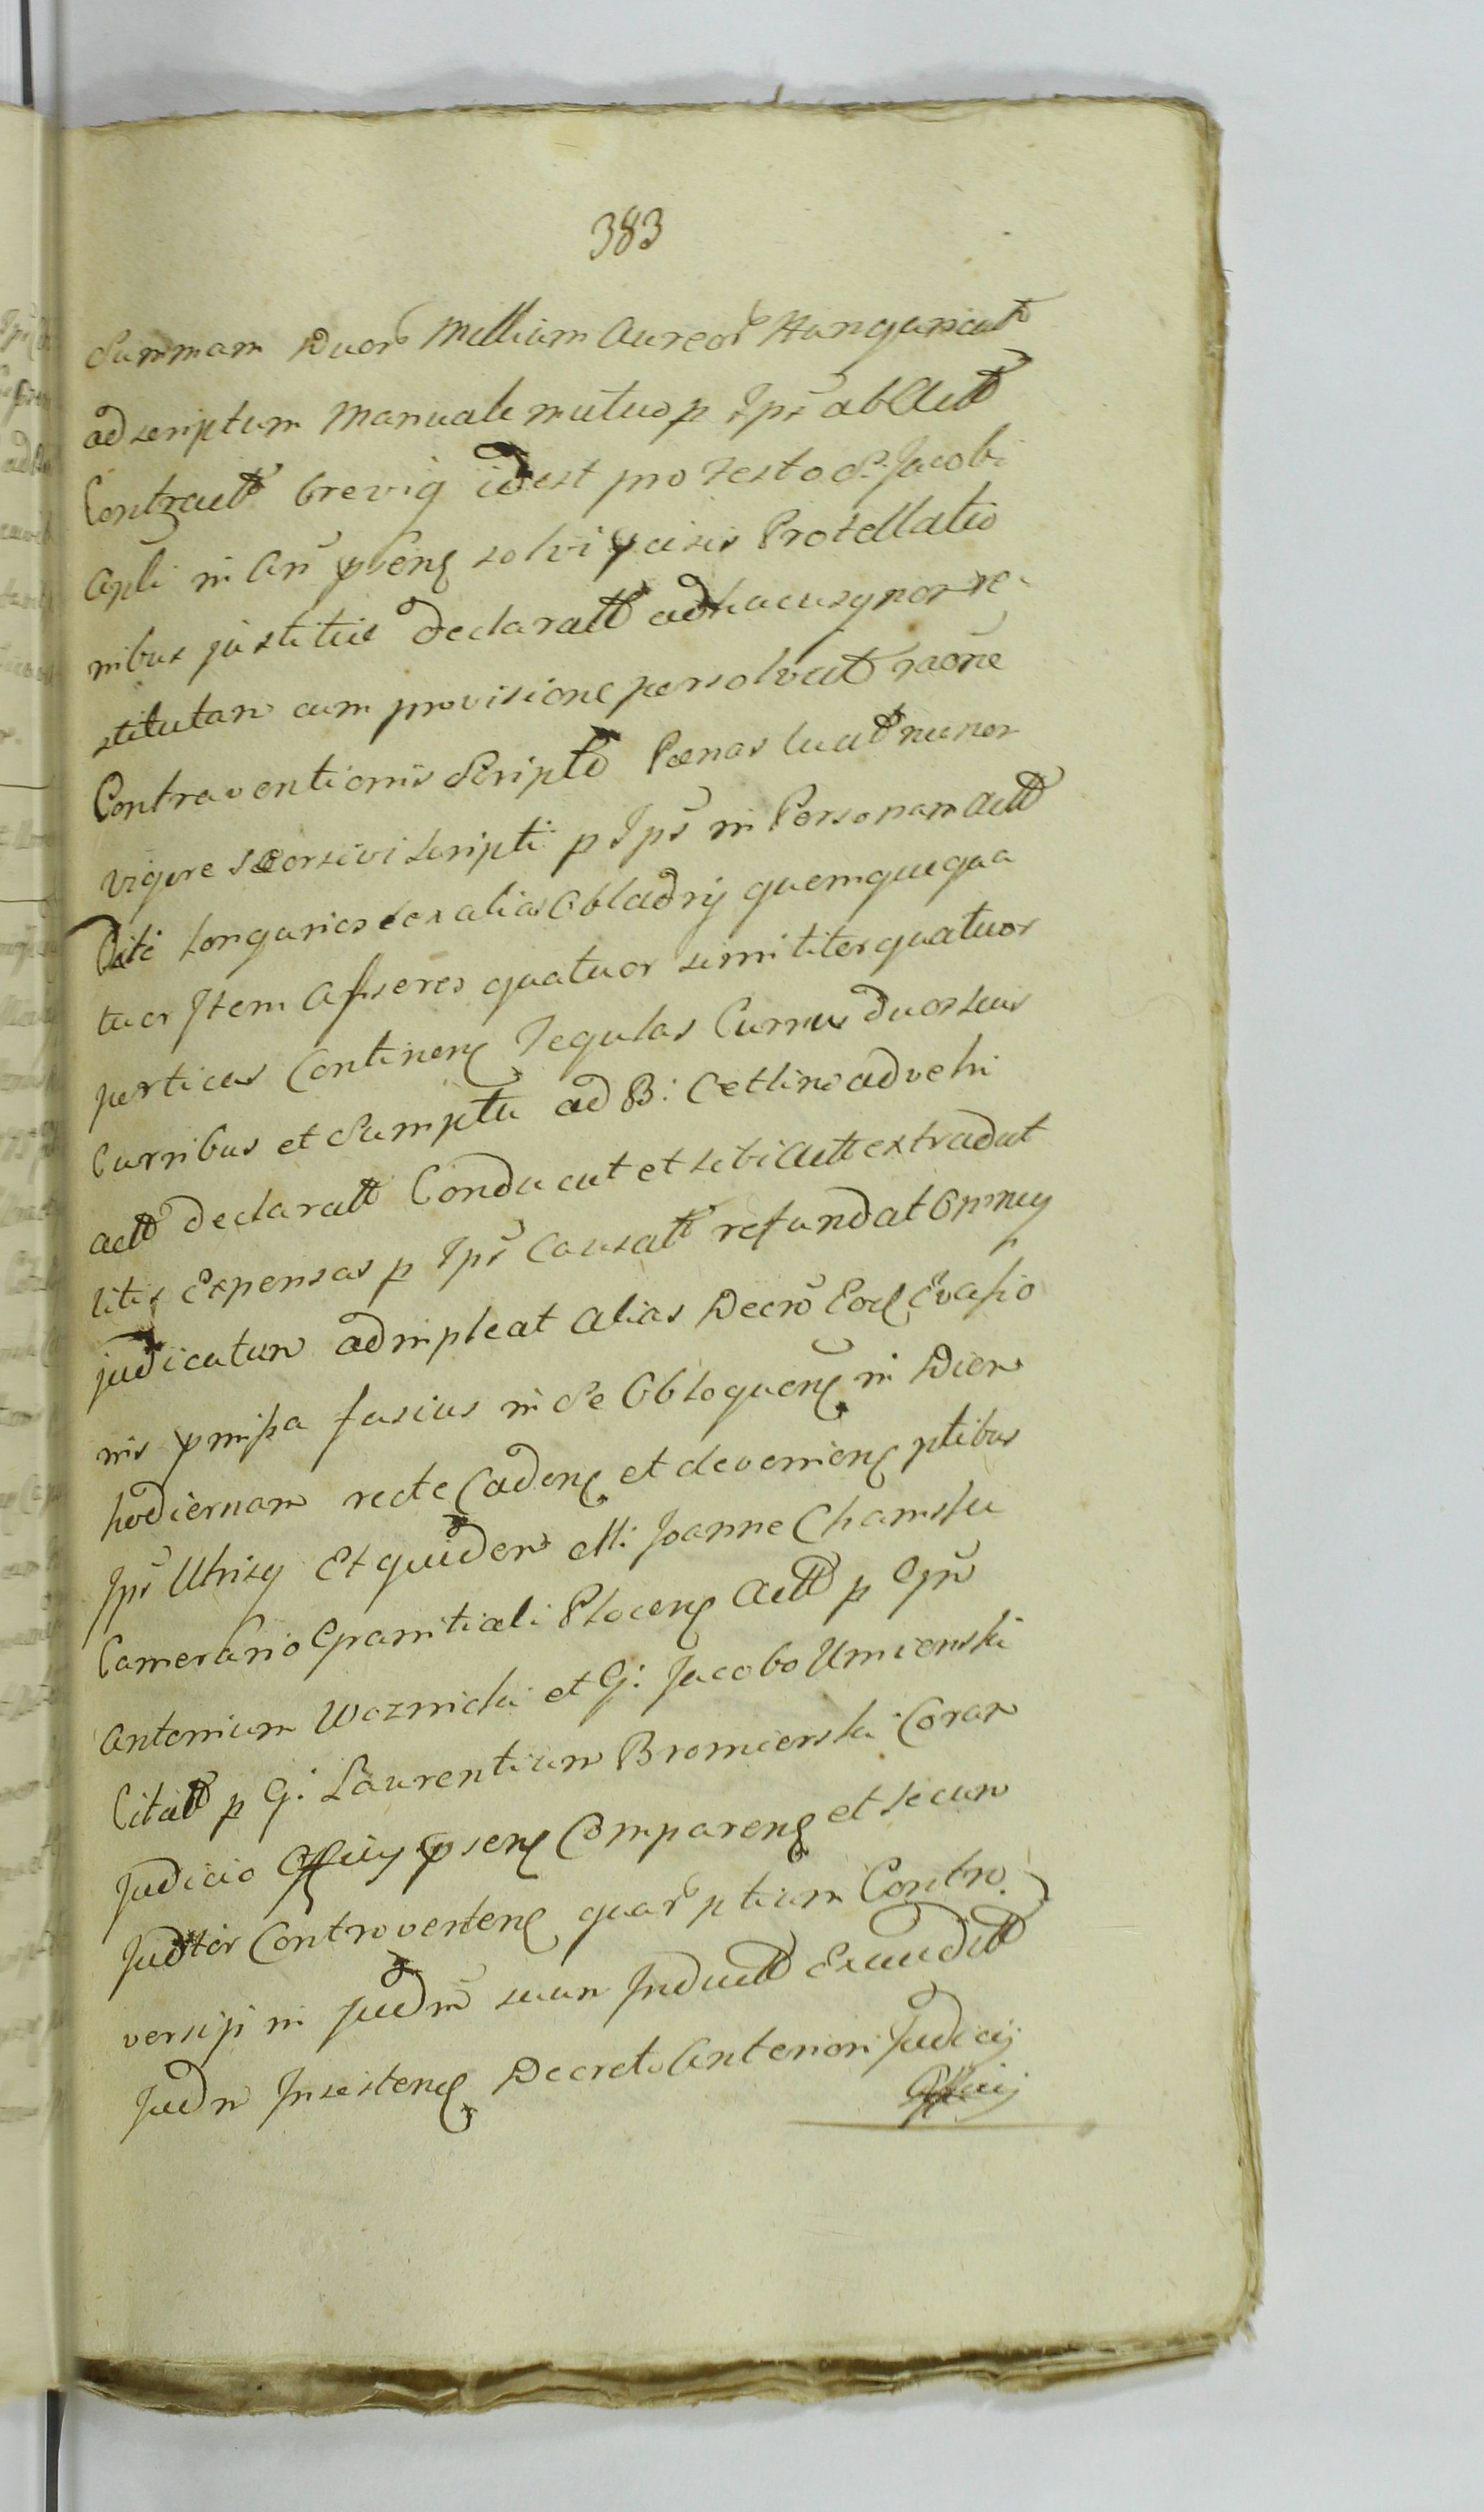 383
Summam Duor Millium Aureor Hungarical
ad scriptum Manuale mutuo p Ips ab Actt
Contractt brevią idest pro Festo S. Jacobi
Apli in An pseng solvi Protellatio
nibus justitiæ declaratt adhacusq non re
stitutam cum provisione persolvat raõne
Contraventionis Scripto Pænas luat nec non
vigore seorsivi scripti p Ips in Personam Actt
Dati Longarios sex alias Obladry quemque qua
tuor Item Asseres quatuor similiter quatuor
perticas Contineng Tegulas Currus duos suis
Curribus et Sumptu ad B: Cetlino advehi
actt declaratt Conducat et sibi Actt extradat
litis Expensas p Ips Causatt refundat Omneq
judicatum adimpleat alias Decrõ Eoq Evasio
nis pmissa fusius in Se Obloqueng in Diem
hodiernam recte Cadeng et devenieng ptibus
Ips Utrisq Et quidem M. Joanne Chamski
Camerario Granitiali Ploceng Actt p Gn
Antonium Woznicki et G: Jacobo Umienski
Citatt p G: Laurentium Bromierski Coram
Judicio Officij pseng Compareng et secum
Judtér Controverteng quar ptium Contro
versiji in Judm suum Inductt Exauditt
Judm Insisteng Decreto Anteriori Judicij
Officij